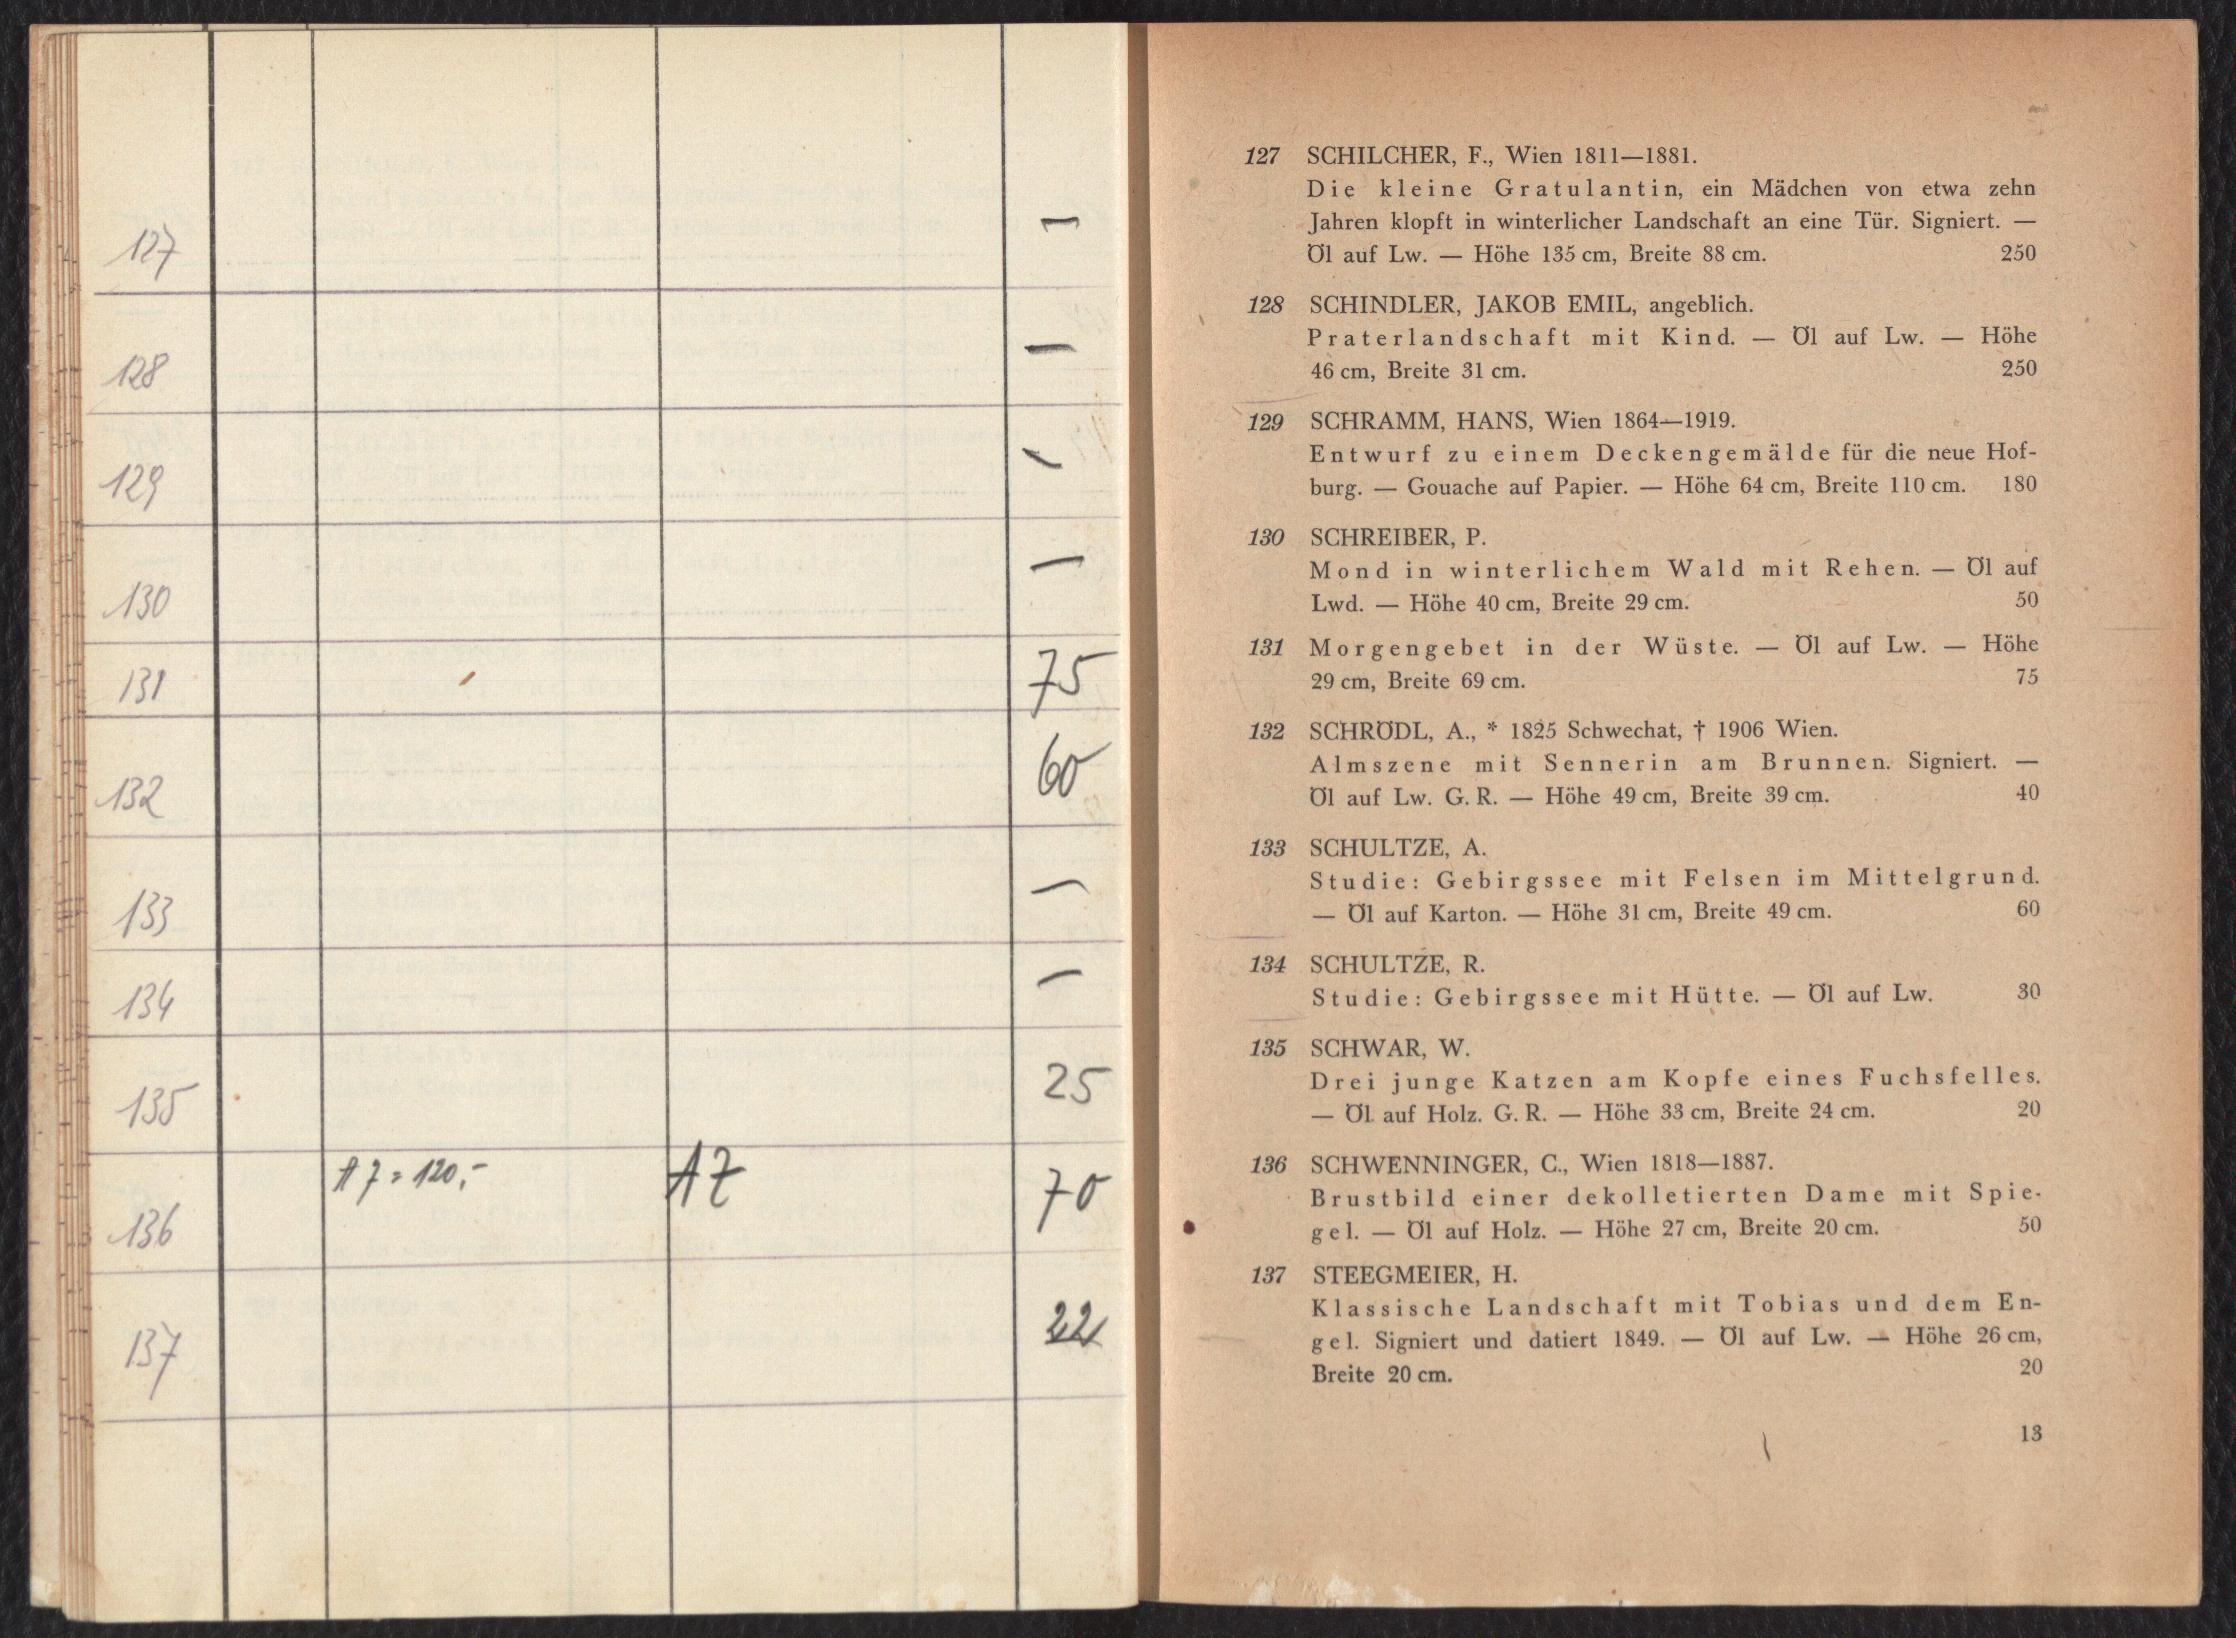 127 —
128 —
129 —
130 —
131 75
132 60
133 —
134 —
135 25
136 A7 = 120,- A7 70
137 22
127 SCHILCHER, F., Wien 1811—1881.
Die kleine Gratulantin, ein Mädchen von etwa zehn
Jahren klopft in winterlicher Landschaft an eine Tür. Signiert. —
Öl auf Lw. — Höhe 135 cm, Breite 88 cm. 250
128 SCHINDLER, JAKOB EMIL, angeblich.
Praterlandschaft mit Kind. — Öl auf Lw. — Höhe
46 cm, Breite 31 cm. 250
129 SCHRAMM, HANS, Wien 1864—1919.
Entwurf zu einem Deckengemälde für die neue Hof-
burg. — Gouache auf Papier. — Höhe 64 cm, Breite 110 cm. 180
130 SCHREIBER, P.
Mond in winterlichem Wald mit Rehen. — Öl auf
Lwd. — Höhe 40 cm, Breite 29 cm. 50
131 Morgengebet in der Wüste. — Öl auf Lw. — Höhe
29 cm, Breite 69 cm. 75
132 SCHRÖDL, A., * 1825 Schwechat, † 1906 Wien.
Almszene mit Sennerin am Brunnen. Signiert. —
Öl auf Lw. G. R. — Höhe 49 cm, Breite 39 cm. 40
133 SCHULTZE, A.
Studie: Gebirgssee mit Felsen im Mittelgrund.
— Öl auf Karton. — Höhe 31 cm, Breite 49 cm. 60
134 SCHULTZE, R.
Studie: Gebirgssee mit Hütte. — Öl auf Lw. 30
135 SCHWAR, W.
Drei junge Katzen am Kopfe eines Fuchsfelles.
— Öl auf Holz. G. R. — Höhe 33 cm, Breite 24 cm. 20
136 SCHWENNINGER, C., Wien 1818—1887.
Brustbild einer dekolletierten Dame mit Spie-
gel. — Öl auf Holz. — Höhe 27 cm, Breite 20 cm. 50
137 STEEGMEIER, H.
Klassische Landschaft mit Tobias und dem En-
gel. Signiert und datiert 1849. — Öl auf Lw. — Höhe 26 cm,
Breite 20 cm. 20
13